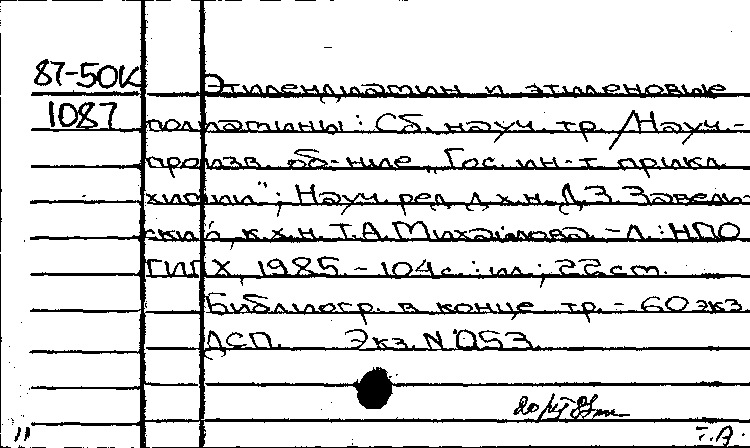 87-50К Этилендиамин и этиленовые
1087 полиамины: Сб. науч. тр. /Науч.-
произв. об-ние „Гос. ин-т прикл.
химии"; Науч. ред. д.х.н. Д.З. Завель-
ский, к.х.н. Т.А. Михайлова. - Л.: НПО
ГИПХ, 1985. - 104 с.: ил.; 22 см.
Библиогр. в конце тр. - 60 экз.
ДСП. Экз. N 053.
Т.А.